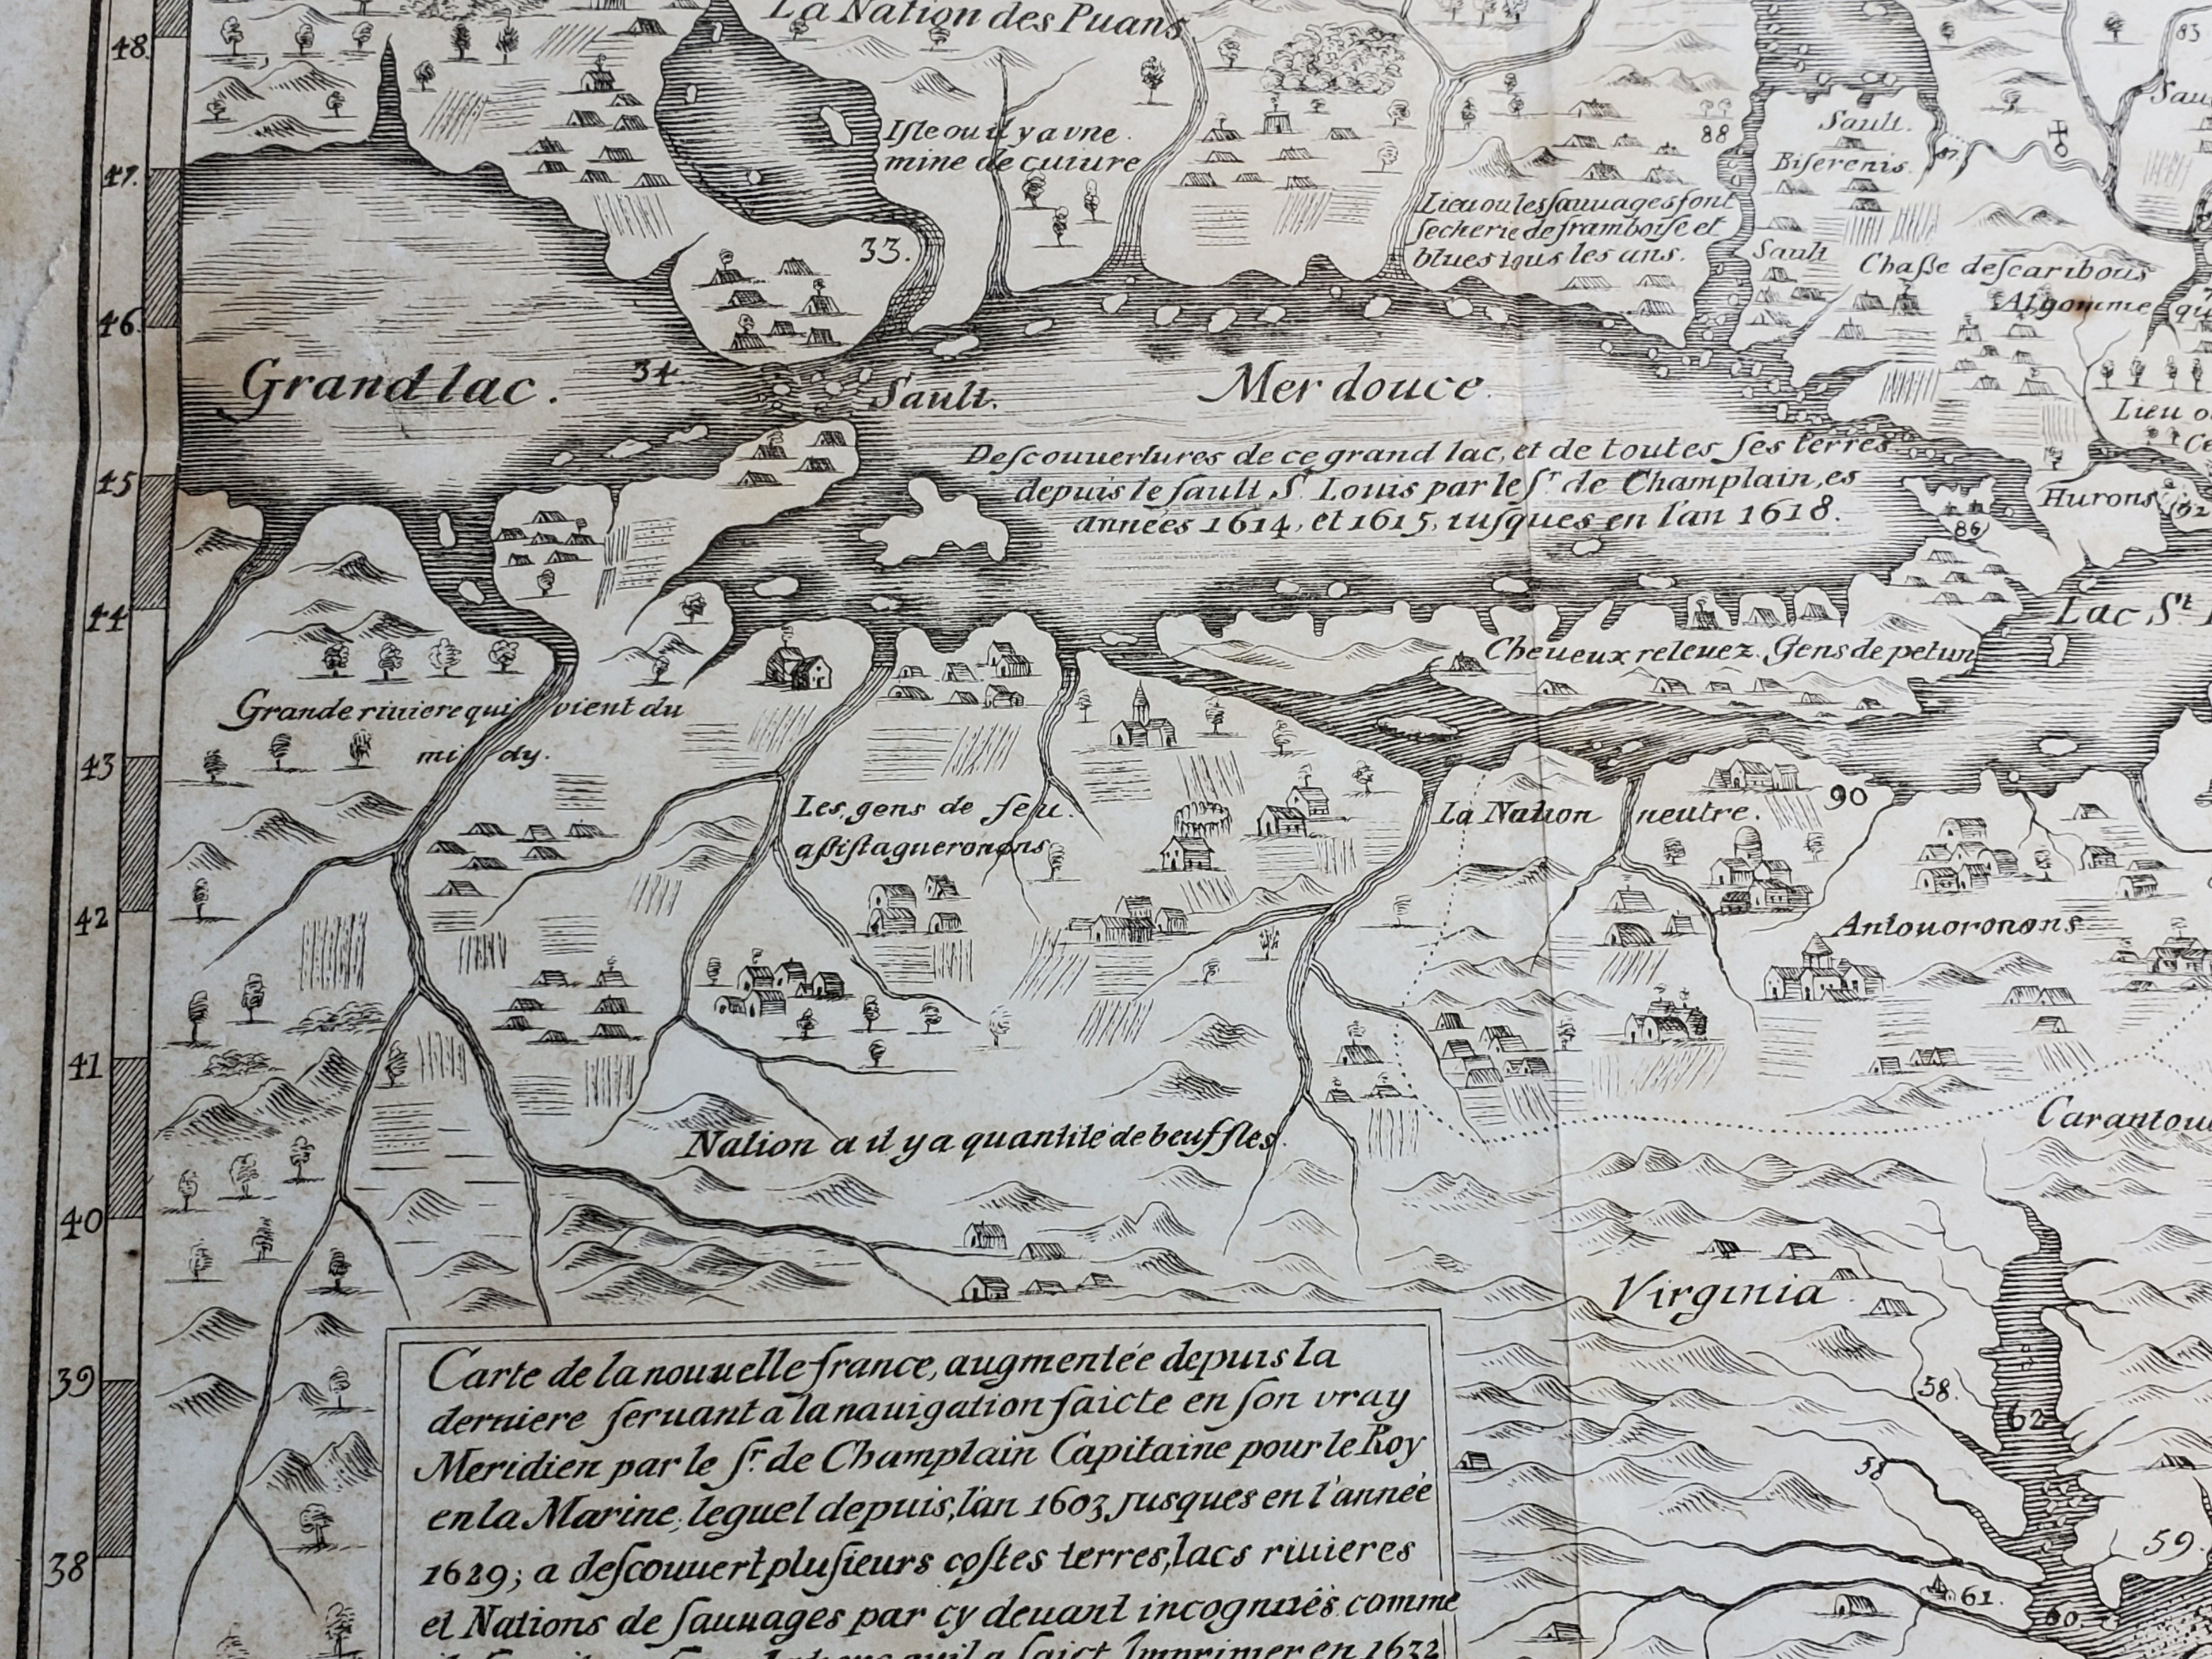 La Nation des Puans
48.
83
Isle ou il y a vne
mine de cuiure
88
Sault.
Biserenis
87.
47.
Lieu ou les sauuages font
secherie de framboise et
blues tous les ans.
33.
Sault
Chasse des caribous
Algommequ
46.
Grand lac.
34.
Sault.
Mer douce.
Lieu o
Descouuertures de ce grand lac, et de toutes ses terres
depuis le sault S. Louis par le Sr. de Champlain, es
années 1614, et 1615, iusques en l'an 1618.
45
Hurons
86
44
Lac St.
Cheueux releuez. Gens de petun
Grande riuiere qui vient du
midy.
43
90
Les gens de feu.
assistagueronons
La Nation neutre.
42
Antouoronons
41
Nation a il y a quantité de beuffles.
Carantou
40
Virginia
39
58.
62
58
59.
38
61.
60.
Carte de la nouuelle france, augmentée depuis la
derniere seruant a la nauigation faicte en son vray
Meridien par le Sr. de Champlain Capitaine pour le Roy
en la Marine; lequel depuis l'an 1603 jusques en l'année
1629; a descouuert plusieurs costes terres, lacs riuieres
et Nations de sauuages par cy deuant incognuës comme
faict Imprimer en 1632